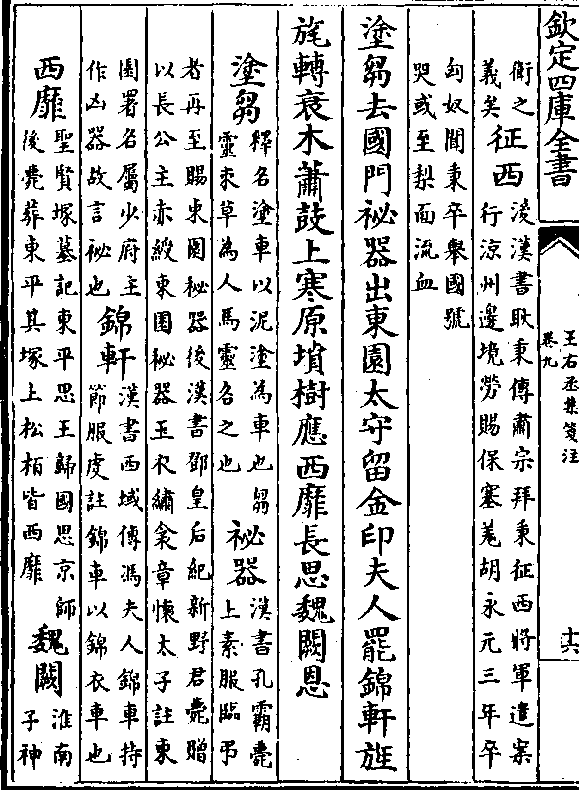 欽定四庫全書
王右丞集箋注
卷九
十六
衛之
義矣
征西
後漢書耿秉傳肅宗拜秉征西將軍遣案
行涼州邊境勞賜保塞羌胡永元三年卒
匈奴聞秉卒舉國號
哭或至梨面流血
塗芻去國門祕器出東園太守留金印夫人罷錦軒旌
旄轉衰木蕭鼓上寒原墳樹應西靡長思魏闕恩
塗芻
釋名塗車以泥塗為車也芻
靈束草為人馬靈名之也
祕器
漢書孔霸薨
上素服臨弔
者再至賜東園秘器後漢書鄧皇后紀新野君薨贈
以長公主赤綬東園秘器玉衣繡衾章懷太子註東
園署名屬少府主
作凶器故言秘也
錦軒
漢書西域傳馮夫人錦車持
節服虔註錦車以錦衣車也
西靡
聖賢塚墓記東平思王歸國思京師
後薨葬東平其塚上松柏皆西靡
魏闕
淮南
子神